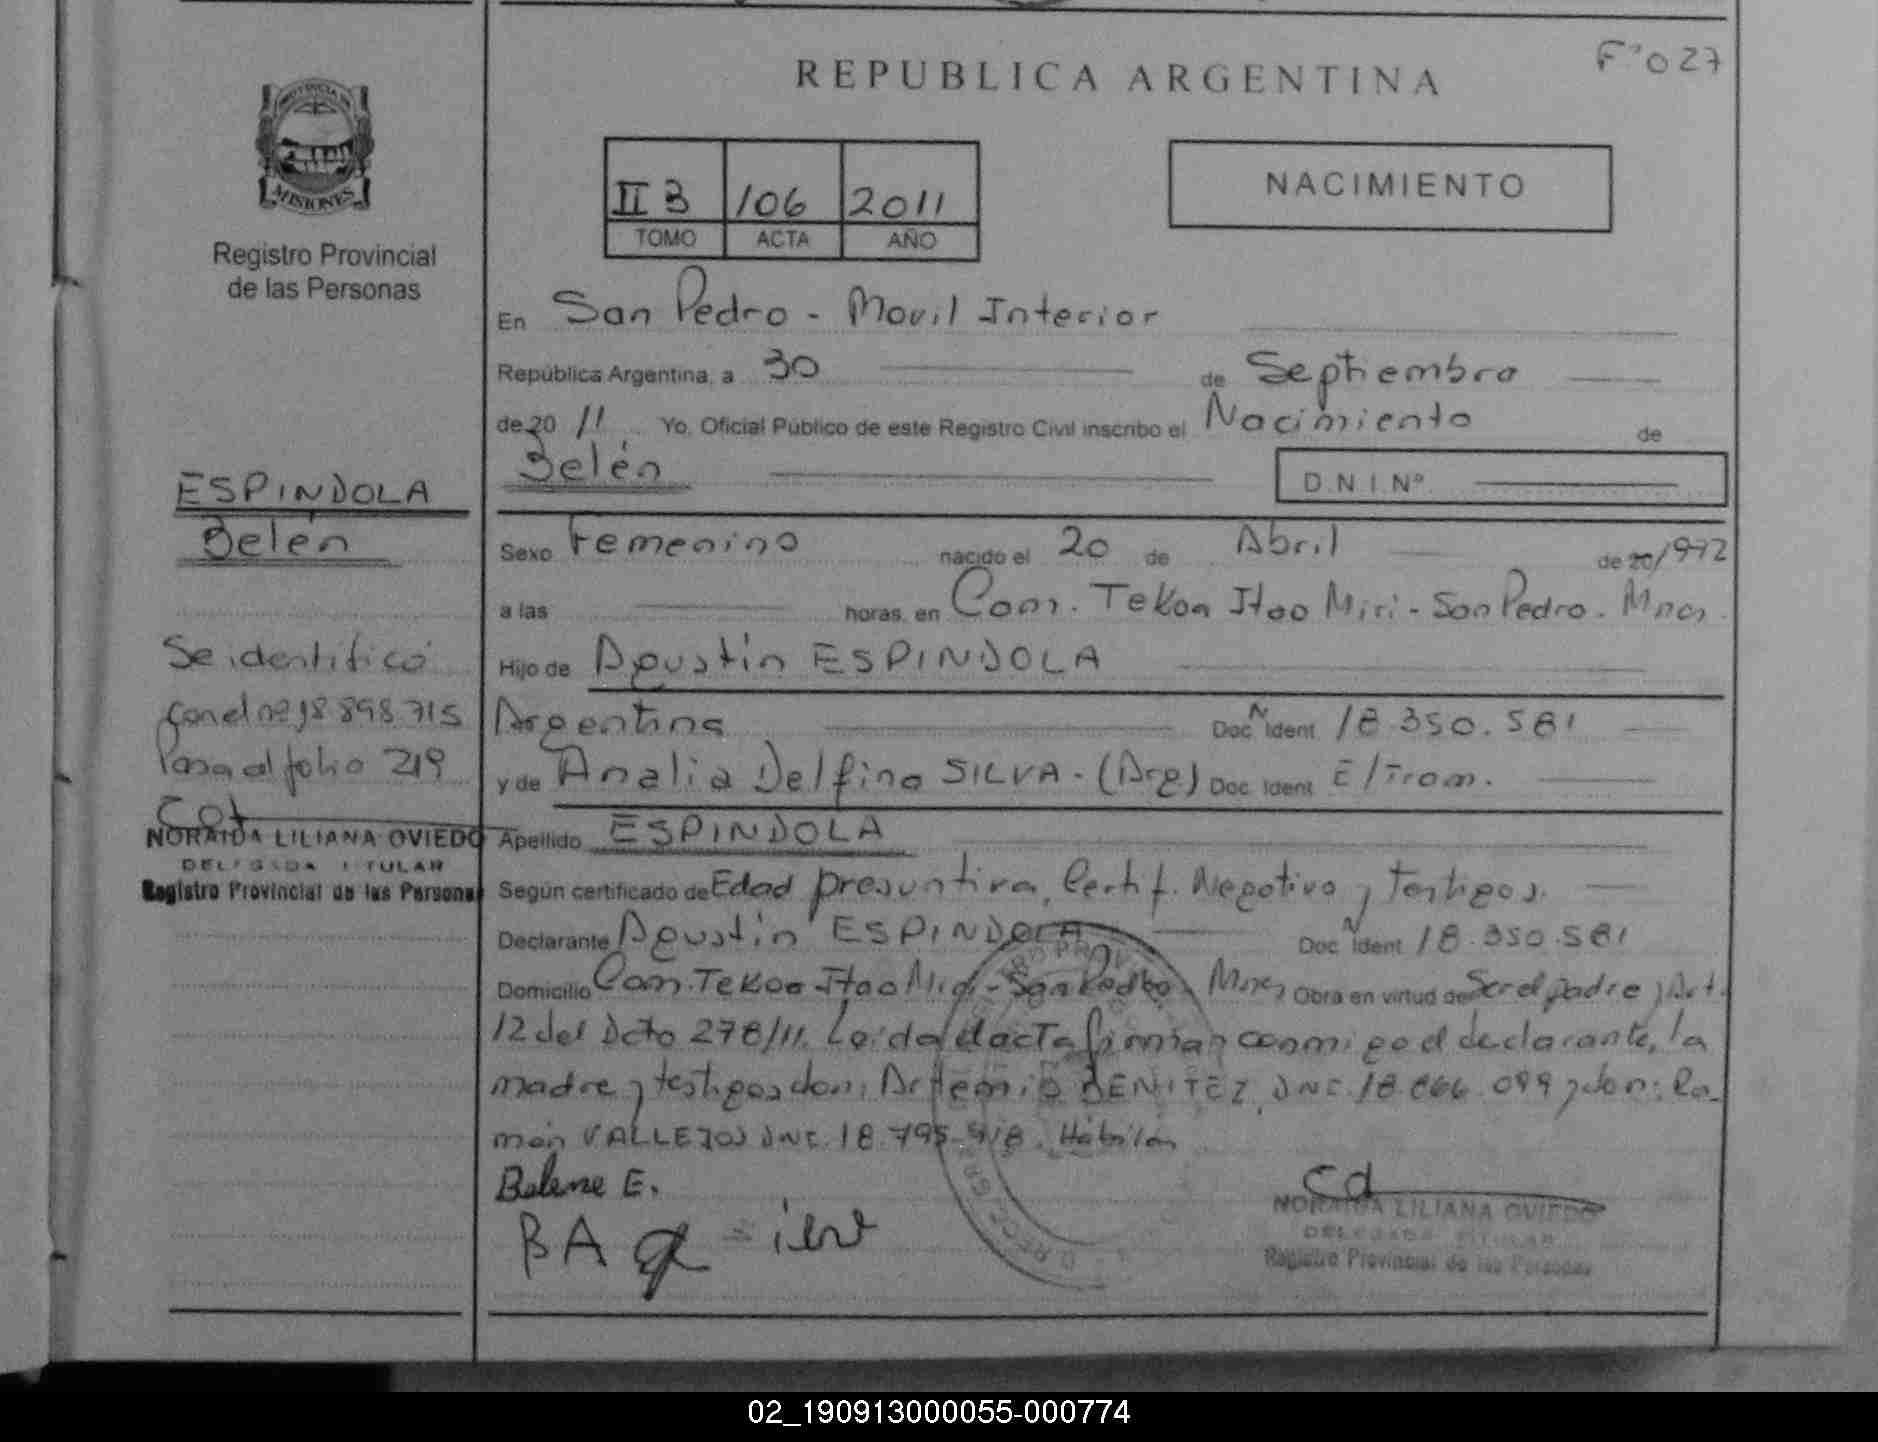 F° 027
REPUBLICA ARGENTINA
PROVINCIA DE
MISIONES
Registro Provincial
de las Personas
II 3 106 2011
TOMO ACTA AÑO
NACIMIENTO
En San Pedro - Movil Interior
República Argentina, a 30 de Septiembre
de 20 11. Yo, Oficial Público de este Registro Civil inscribo el Nacimiento de
Belén D.N.I.Nº
ESPINDOLA
Belén
Sexo Femenino nacido el 20 de Abril de 20/1972
a las horas, en Com. Tekoa Itao Miri - San Pedro. Mnes.
Hijo de Agustín ESPINDOLA
Argentina Doc. Ident. 18.350.581
y de Analia Delfina SILVA - (Arg) Doc. Ident. E/Tram.
Apellido ESPINDOLA
Según certificado de Edad presuntiva, Certif. Negativo y testigos.
Declarante Agustín ESPINDOLA Doc. Ident. 18.350.581
Domicilio Com. Tekoa Itao Miri - San Pedro. Mnes Obra en virtud de Ser el padre y Art.
12 del Dcto 278/11. Leída el acta firman conmigo el declarante, la
madre y testigos don: Artemio BENITEZ, DNI. 18.666.099 y don: Ra-
món VALLEJOS DNI. 18.795.918. Hábiles
Se identificó
con el nº 18 898 715
Pasa al folio 219
NORAIDA LILIANA OVIEDO
DELEGADA TITULAR
Registro Provincial de las Personas
Belene E.
BA
NORAIDA LILIANA OVIEDO
DELEGADA TITULAR
Registro Provincial de las Personas
02_190913000055-000774